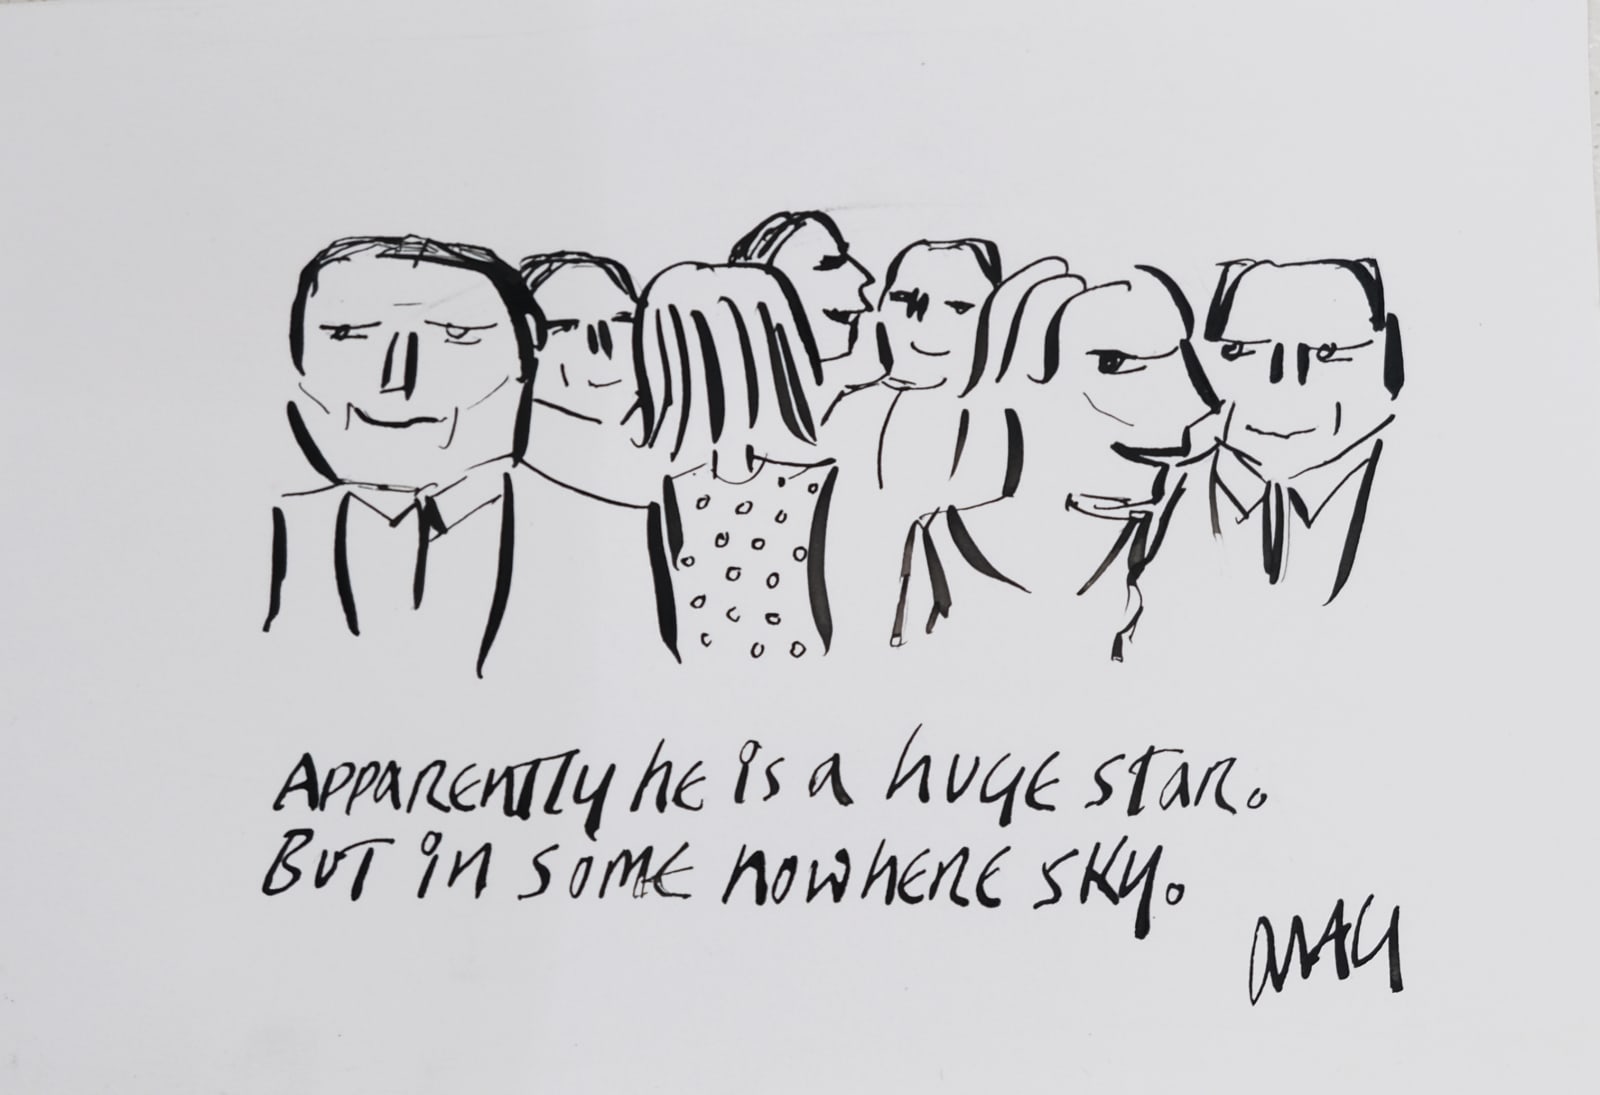 Apparently he is a huge star.
But in some nowhere sky.